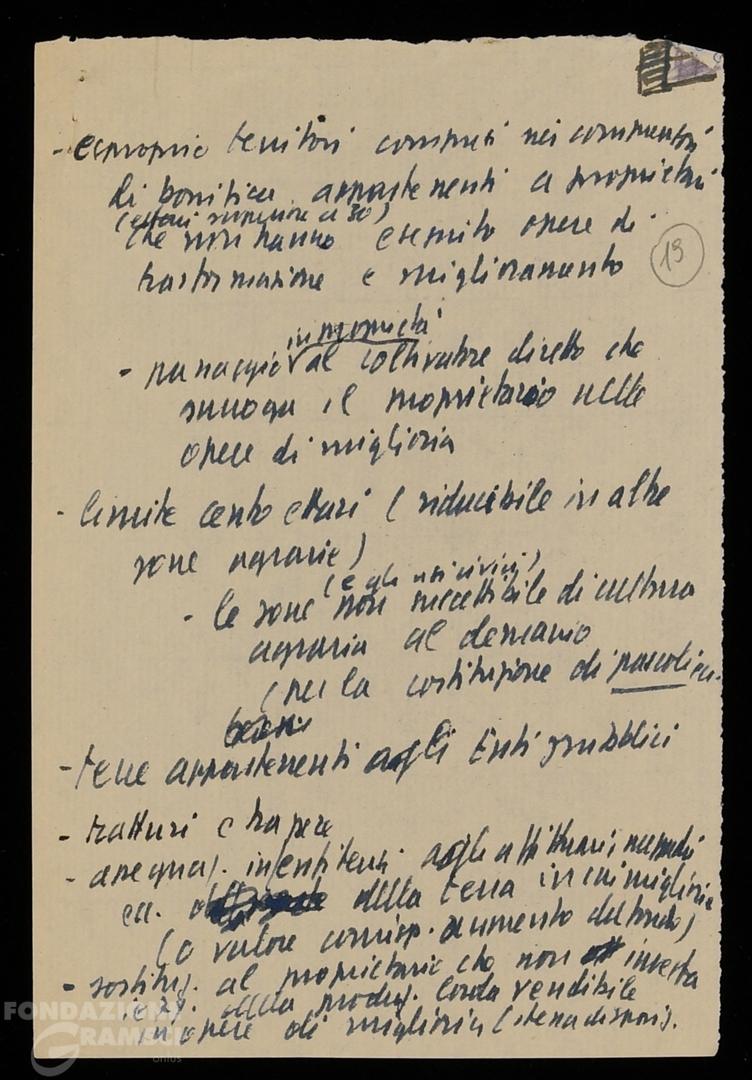 - esproprio territori compresi nei comprensori
di bonifica appartenenti a proprietari
(ettari superiore a 30)
che non hanno eseguito opere di
trasformazione e miglioramento
19
in proprietà
- passaggio al coltivatore diretto che
surroga il proprietario nelle
opere di miglioria
- limite cento ettari (riducibile in altre
zone agrarie)
(e gli usi civici)
- le zone non suscettibile di cultura
agraria al demanio
(per la costituzione di pascoli
- terre appartenenti agli Enti pubblici
- tratturi e trazzere
- assegnaz. in agli affittuari
ecc. della terra in cui miglioria
(o valore corrisp. aumento del fondo)
- sostituz. al proprietario che non investa
della produz. lorda vendibile
in opere di miglioria
FONDAZIONE
GRAMSCI
onlus